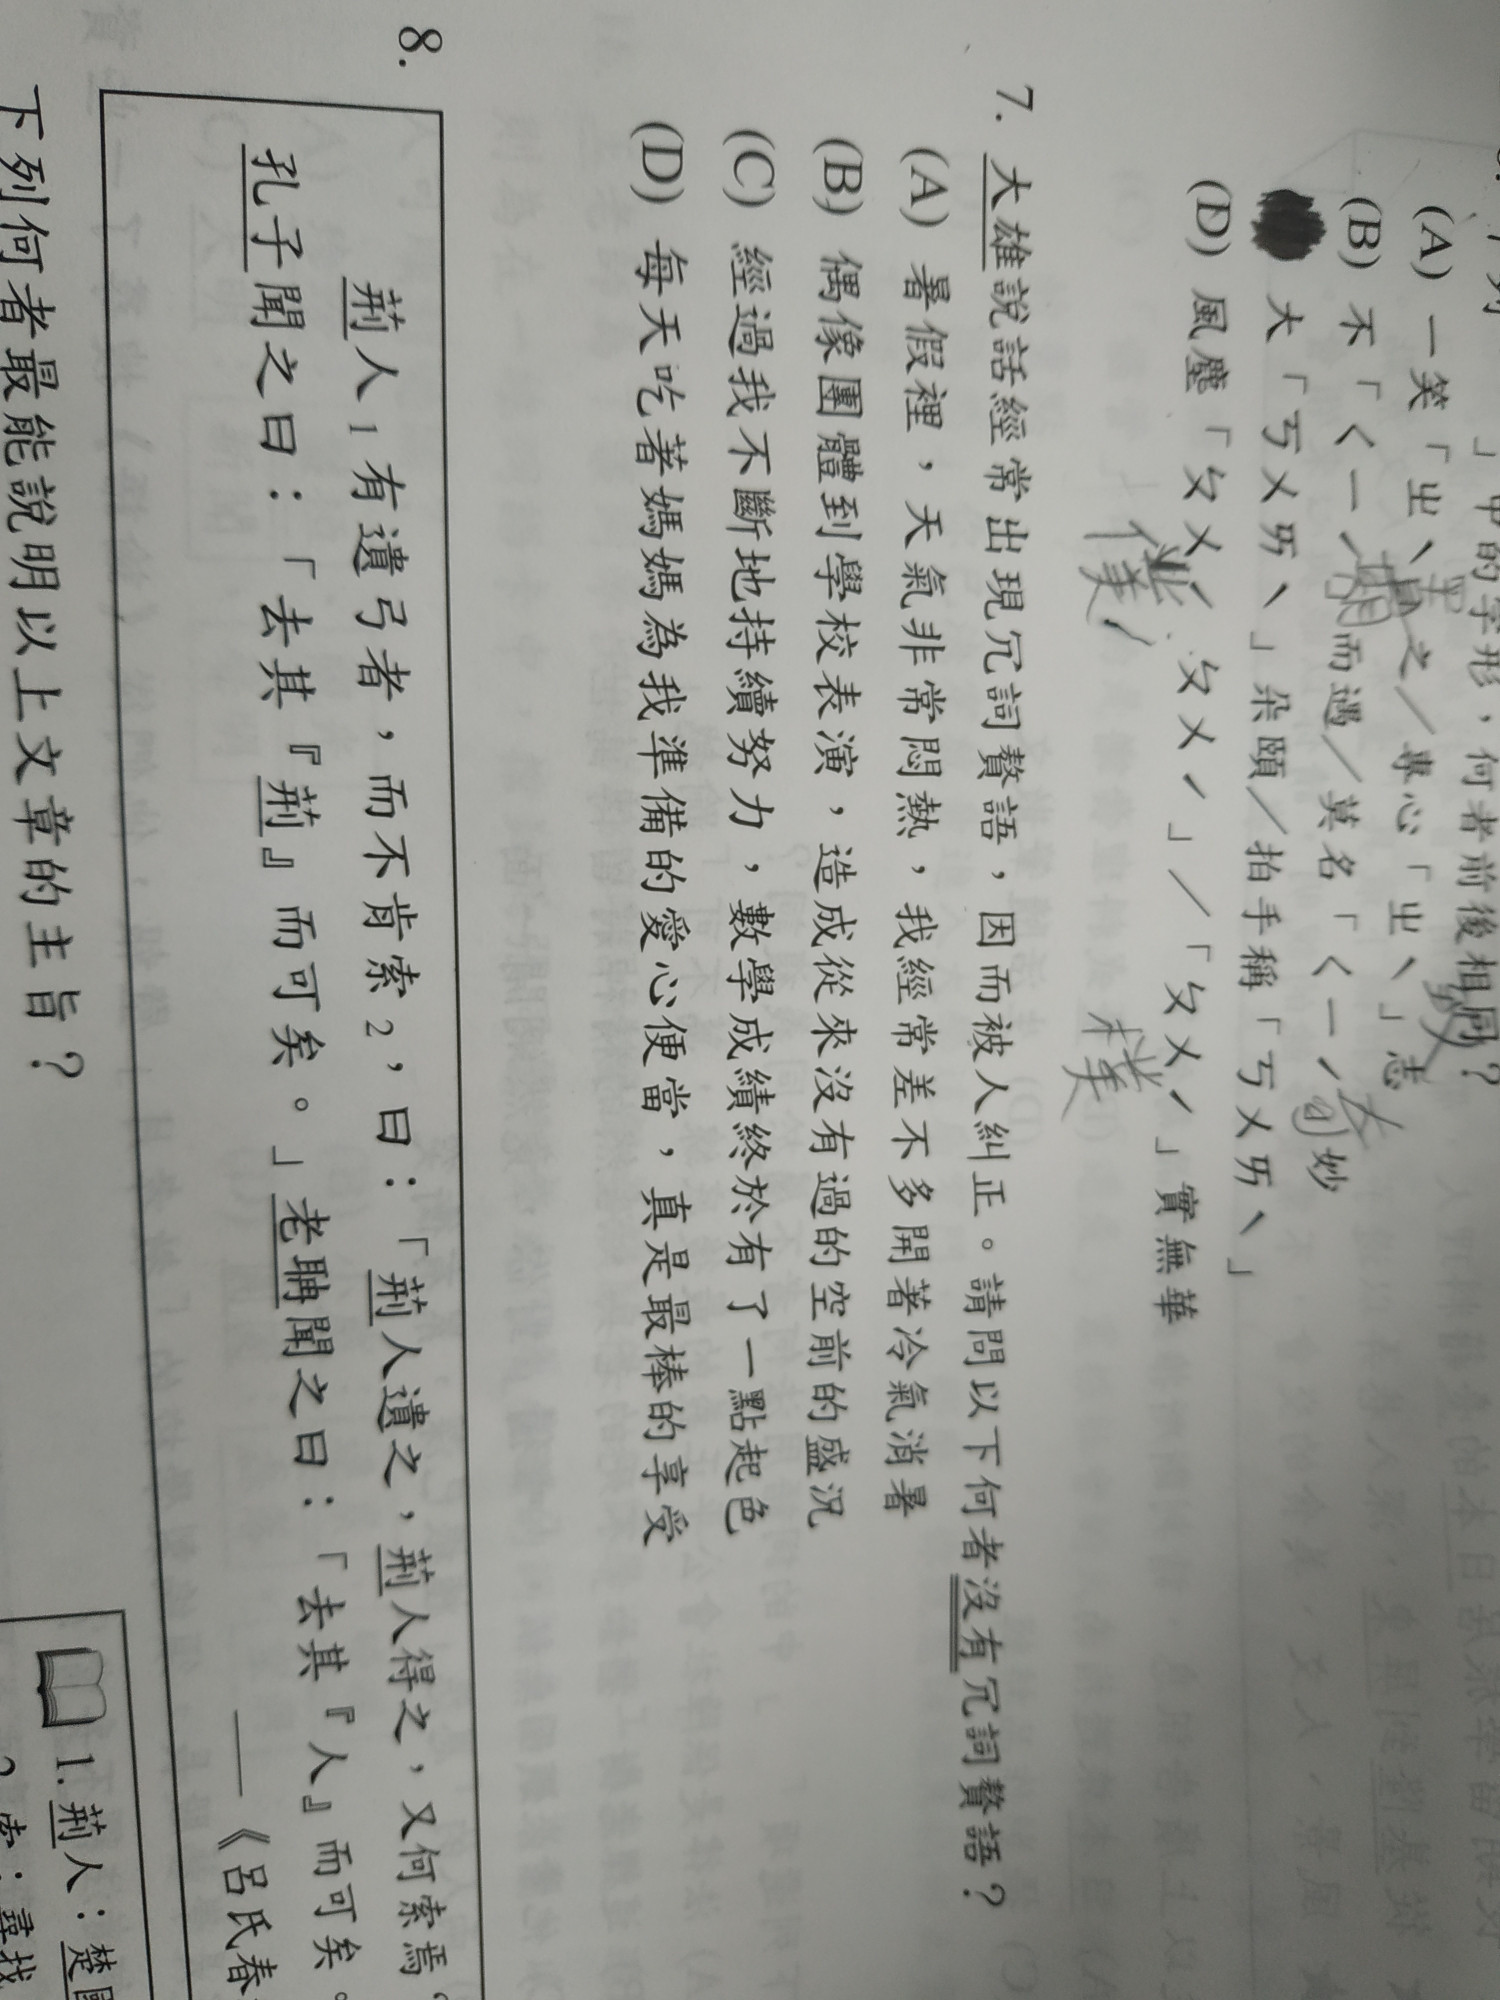 」中的字形，何者前後相同？
(A) 一笑「ㄓˋ」之／專心「ㄓˋ」志
置 致
(B) 不「ㄑㄧˊ」而遇／莫名「ㄑㄧˊ」妙
期 奇
大「ㄎㄨㄞˋ」朵頤／拍手稱「ㄎㄨㄞˋ」
(D) 風塵「ㄆㄨˊ ㄆㄨˊ」／「ㄆㄨˊ」實無華
僕 樸
7. 大雄說話經常出現冗詞贅語，因而被人糾正。請問以下何者沒有冗詞贅語？
(A) 暑假裡，天氣非常悶熱，我經常差不多開著冷氣消暑
(B) 偶像團體到學校表演，造成從來沒有過的空前的盛況
(C) 經過我不斷地持續努力，數學成績終於有了一點起色
(D) 每天吃著媽媽為我準備的愛心便當，真是最棒的享受
8.
荊人1有遺弓者，而不肯索2，曰：「荊人遺之，荊人得之，又何索焉
孔子聞之曰：「去其『荊』而可矣。」老聃聞之曰：「去其『人』而可矣。
——《呂氏春
下列何者最能說明以上文章的主旨？
1. 荊人：楚國
2. 索：尋找